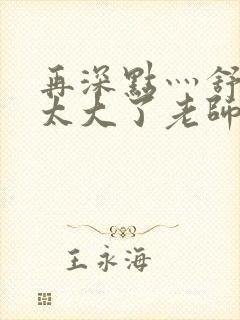 再深點灬舒
太大了老師
王永海